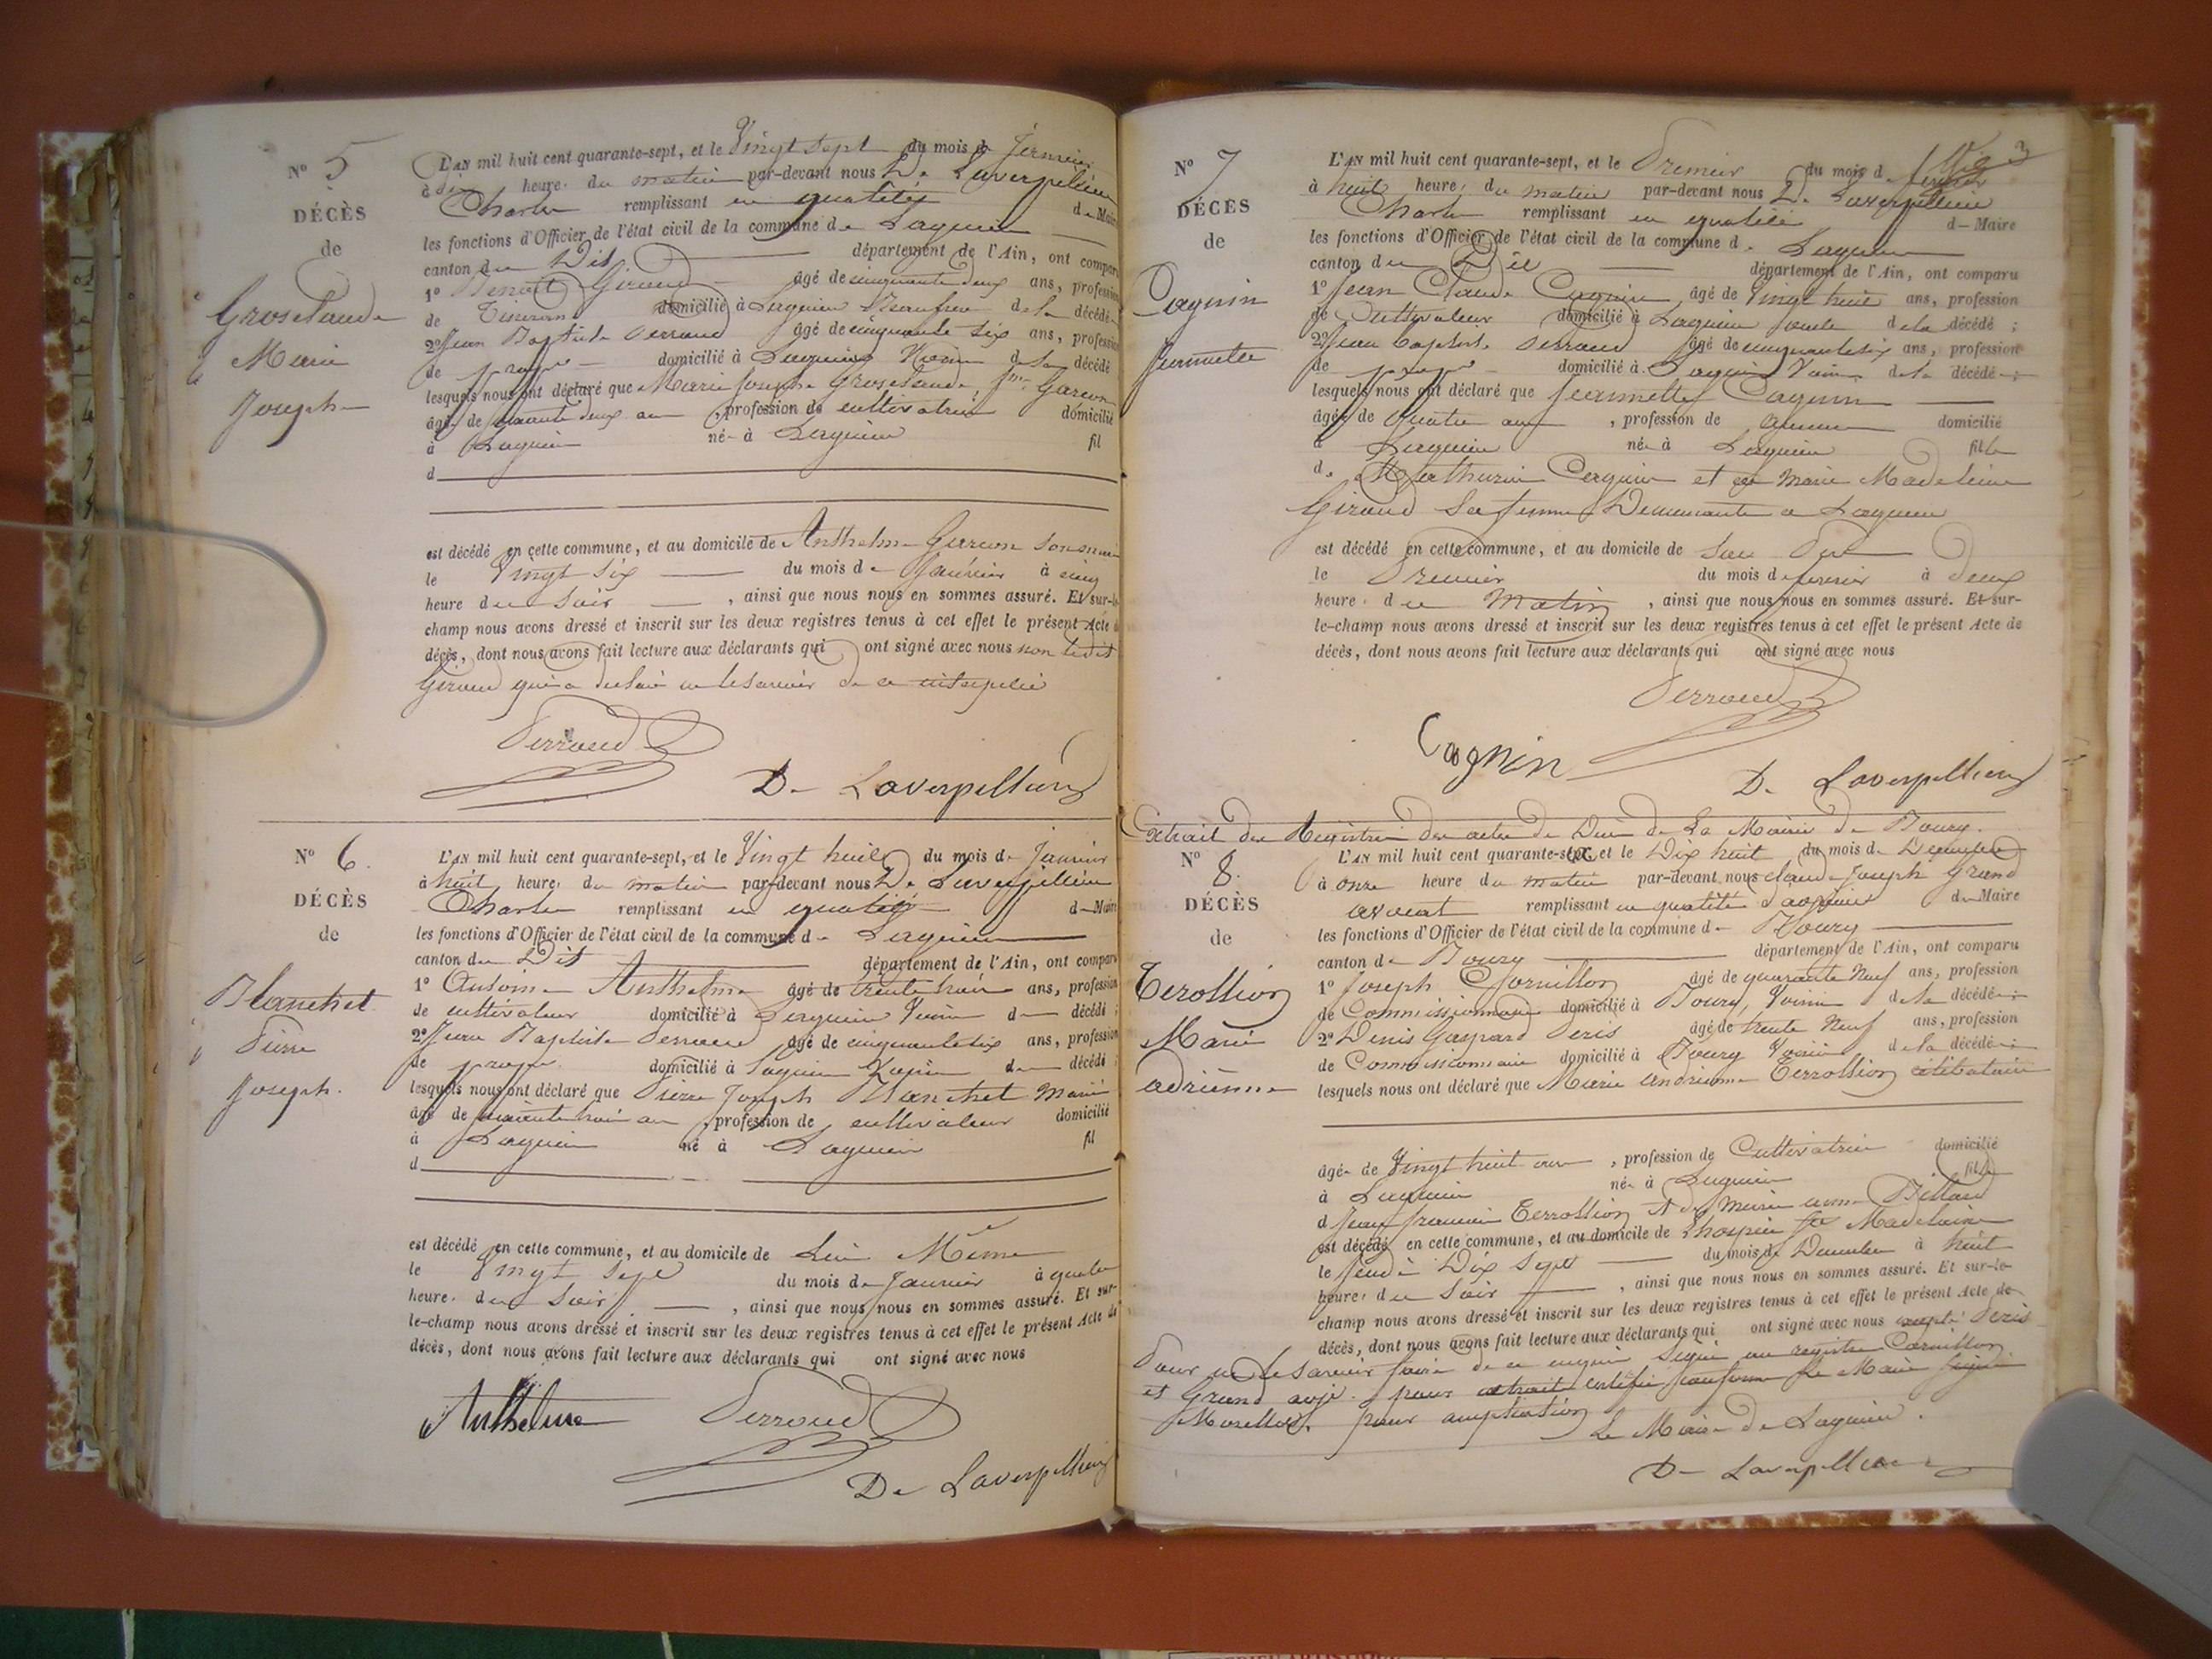 N° 5
DÉCÈS
de
Groselaude
Marie
Joseph
L'AN mil huit cent quarante-sept, et le Vingt sept du mois de Janvier
à dix heure du matin par-devant nous De Laverpillière
Charles remplissant en qualité de Maire
les fonctions d'Officier de l'état civil de la commune de Lagnieu
canton du Dit département de l'Ain, ont comparu
1° Benoit Giraud âgé de cinquante deux ans, profession
de Tisserand domicilié à Lagnieu de la décédée
2° Jean Baptiste Perraud âgé de cinquante six ans, profession
de domicilié à Lagnieu Voisin de la décédé
lesquels nous ont déclaré que Marie Joseph Groselaude fme Garcon
âgée de deux ans, profession de cultivatrice domicilié
à Lagnieu née à Lagnieu fil
d
est décédé en cette commune, et au domicile de Anthelme Garcon son mari
le Vingt Six du mois de Janvier à cinq
heure du Soir , ainsi que nous nous en sommes assuré. Et sur-le-
champ nous avons dressé et inscrit sur les deux registres tenus à cet effet le présent Acte de
décès, dont nous avons fait lecture aux déclarants qui ont signé avec nous non ledit
Giraud qui a déclaré ne le savoir de ce
Perraud
De Laverpilliere
N° 6.
DÉCÈS
de
Blanchet
Pierre
Joseph.
L'AN mil huit cent quarante-sept, et le Vingt huit du mois de Janvier
à huit heure du matin par-devant nous De Laverpillière
Charles remplissant en qualité de Maire
les fonctions d'Officier de l'état civil de la commune de Lagnieu
canton du Dit département de l'Ain, ont comparu
1° Antoine Anthelme âgé de trente ans, profession
de cultivateur domicilié à Lagnieu Voisin du décédé ;
2° Jean Baptiste Perraud âgé de cinquante six ans, profession
de domicilié à Lagnieu Voisin du décédé ;
lesquels nous ont déclaré que Pierre Joseph Blanchet Marié
âgé de ans, profession de cultivateur domicilié
à Lagnieu né à Lagnieu fil
d
est décédé en cette commune, et au domicile de Lui Même
le Vingt Sept du mois de Janvier à quatre
heure. du Soir , ainsi que nous nous en sommes assuré. Et sur-
le-champ nous avons dressé et inscrit sur les deux registres tenus à cet effet le présent Acte de
décès, dont nous avons fait lecture aux déclarants qui ont signé avec nous
Anthelme Perraud
De Laverpilliere
3
N° 7
DÉCÈS
de
Cagnin
Jeannette
L'AN mil huit cent quarante-sept, et le Premier du mois de février
à huit heure, du matin par-devant nous De Laverpillière
Charles remplissant en qualité de Maire
les fonctions d'Officier de l'état civil de la commune de Lagnieu
canton du Dit département de l'Ain, ont comparu
1° Jean Claude Cagnin âgé de Vingt huit ans, profession
de Cultivateur domicilié à Lagnieu oncle de la décédé ;
2° Jean Baptiste Perraud âgé de cinquante six ans, profession
de domicilié à Lagnieu Voisin de la décédé ;
lesquels nous ont déclaré que Jeannette Cagnin
âgée de Quatre ans , profession de aucune domicilié
à Lagnieu née à Lagnieu fille
de Mathurin Cagnin et de Marie Madeleine
Giraud Sa femme Demeurants a Lagnieu
est décédé en cette commune, et au domicile de Son Père
le Premier du mois de février à deux
heure. du Matin , ainsi que nous nous en sommes assuré. Et sur-
le-champ nous avons dressé et inscrit sur les deux registres tenus à cet effet le présent Acte de
décès, dont nous avons fait lecture aux déclarants qui ont signé avec nous
Perraud
Cagnin
De Laverpilliere
Extrait des Registres des actes de Décès de La Mairie de Bourg.
N° 8.
DÉCÈS
de
Terollion
Marie
adrienne
L'AN mil huit cent quarante-six et le Dix huit du mois de Décembre
à onze heure du matin par-devant nous claude Joseph Grand
avocat remplissant en qualité d'adjoint du Maire
les fonctions d'Officier de l'état civil de la commune de Bourg
canton de Bourg département de l'Ain, ont comparu
1° Joseph Cornillon âgé de quarante Neuf ans, profession
de Commissionnaire domicilié à Bourg, Voisin de la décédée ;
2° Denis Gaspard Peris âgé de trente Neuf ans, profession
de Commissionnaire domicilié à Bourg Voisin de la décédée ;
lesquels nous ont déclaré que Marie andrienne Terrollion célibataire
âgée de Vingt huit ans , profession de Cultivatrice domicilié
à Lagnieu née à Lagnieu fille
d Jean francois Terrollion et de Marie anne Billard
est décédé en cette commune, et au domicile de Lhospice Ste Madelaine
le jeudi Dix Sept du mois de Décembre à huit
heure. du Soir , ainsi que nous nous en sommes assuré. Et sur-le-
champ nous avons dressé et inscrit sur les deux registres tenus à cet effet le présent Acte de
décès, dont nous avons fait lecture aux déclarants qui ont signé avec nous excepté Peris
Pour ne le savoir faire de ce enquis Signé au registre Cornillon
et Grand adjt. pour extrait certifié conforme Le Maire Signé
Morellet. pour ampliation
Le Maire de Lagnieu.
De Laverpilliere